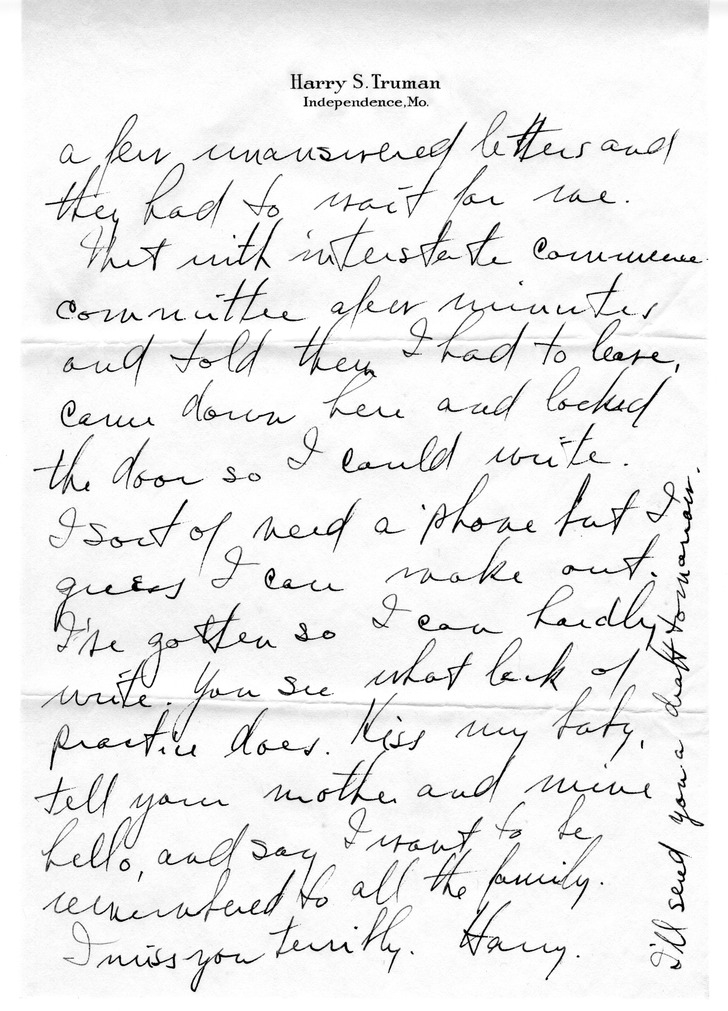 Harry S. Truman
Independence, Mo.
a few unanswered letters and
they had to wait for me.
Met with interstate commerce
committee a few minutes
and told them I had to leave,
came down here and locked
the door so I could write.
I sort of need a 'phone but I
guess I can make out.
I've gotten so I can hardly
write. You see what lack of
practice does. Kiss my baby,
tell your mother and mine
hello, and say I want to be
remembered to all the family.
I miss you terribly. Harry.
I'll send you a draft tomorrow.